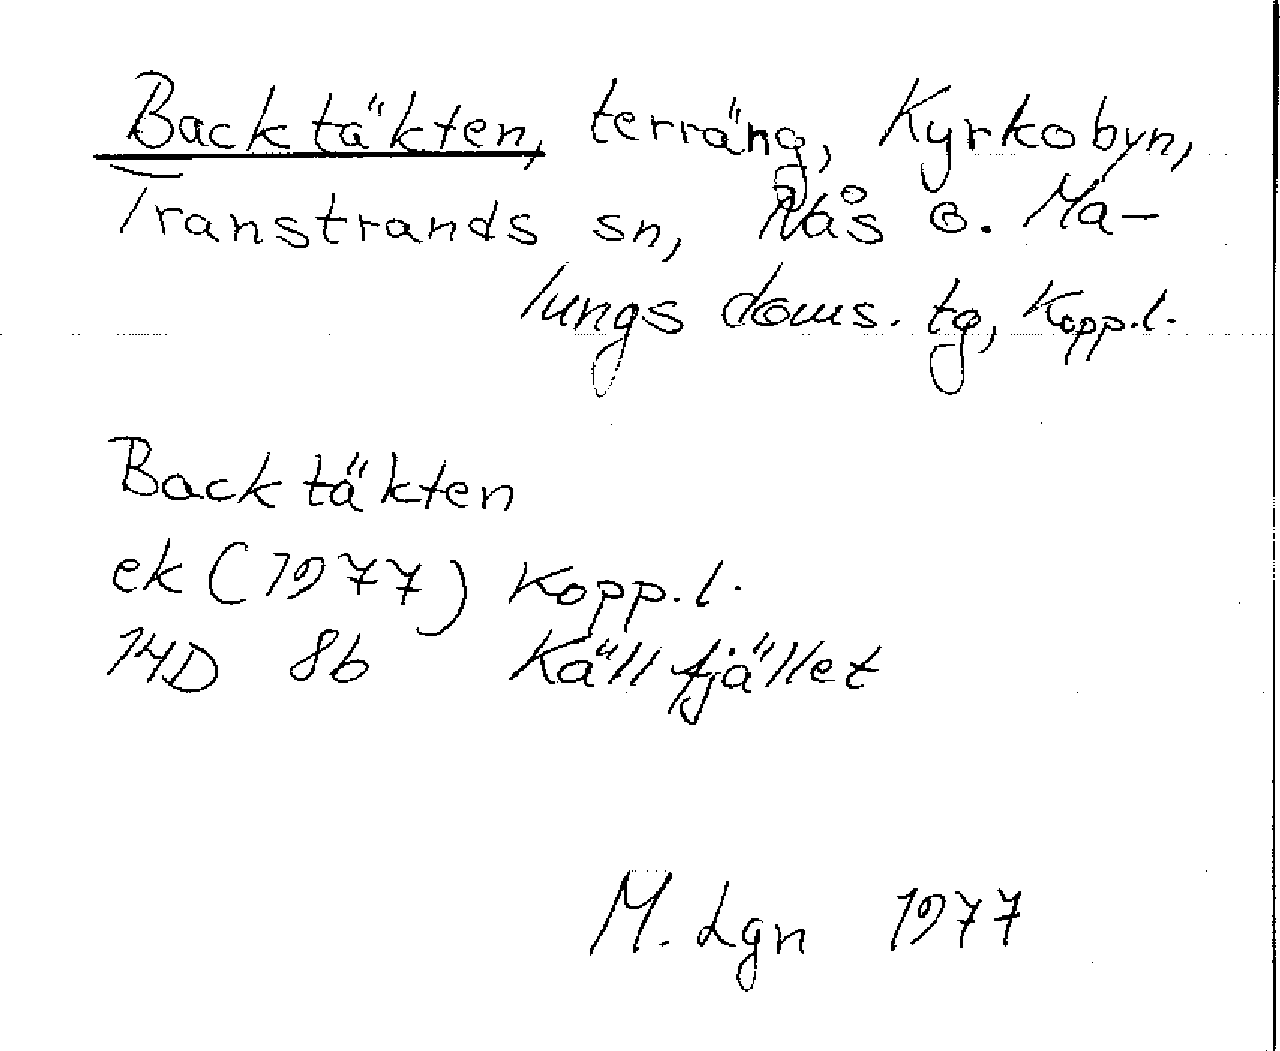 Backtäkten, terräng, Kyrkobyn,
Transtrands sn, Nås o. Ma-
lungs doms. tg, Kopp.l.
Backtäkten
ek (1977) Kopp.l.
14D 8b Källfjället
M. Lgn 1977